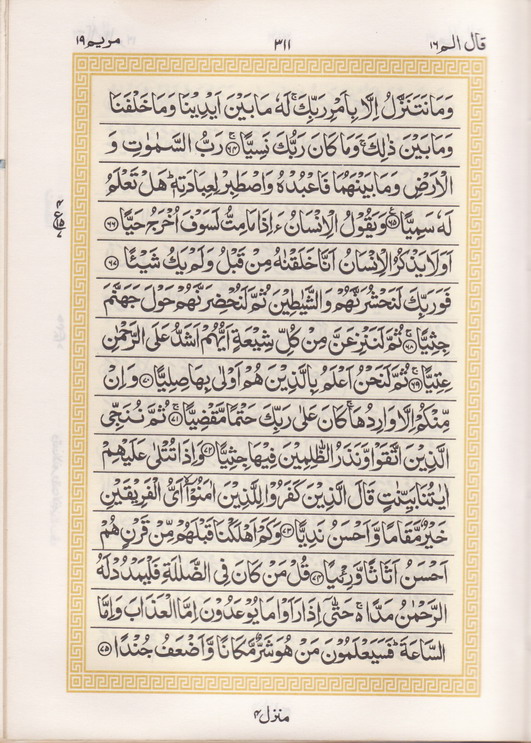 قال الم ١٦
٣١١
مريم ١٩
وَمَا نَتَنَزَّلُ اِلَّا بِاَمْرِ رَبِّكَ ۚ لَهٗ مَا بَيْنَ اَيْدِيْنَا وَمَا خَلْفَنَا
وَمَا بَيْنَ ذٰلِكَ ۚ وَمَا كَانَ رَبُّكَ نَسِيًّا ۚ ﴿٦٤﴾ رَبُّ السَّمٰوٰتِ وَ
الْاَرْضِ وَمَا بَيْنَهُمَا فَاعْبُدْهُ وَاصْطَبِرْ لِعِبَادَتِهٖ ؕ هَلْ تَعْلَمُ
لَهٗ سَمِيًّا ﴿٦٥﴾ وَيَقُوْلُ الْاِنْسَانُ ءَاِذَا مَا مِتُّ لَسَوْفَ اُخْرَجُ حَيًّا ﴿٦٦﴾
اَوَلَا يَذْكُرُ الْاِنْسَانُ اَنَّا خَلَقْنٰهُ مِنْ قَبْلُ وَلَمْ يَكُ شَيْـًٔا ﴿٦٧﴾
فَوَرَبِّكَ لَنَحْشُرَنَّهُمْ وَالشَّيٰطِيْنَ ثُمَّ لَنُحْضِرَنَّهُمْ حَوْلَ جَهَنَّمَ
جِثِيًّا ۚ ﴿٦٨﴾ ثُمَّ لَنَنْزِعَنَّ مِنْ كُلِّ شِيْعَةٍ اَيُّهُمْ اَشَدُّ عَلَى الرَّحْمٰنِ
عِتِيًّا ۚ ﴿٦٩﴾ ثُمَّ لَنَحْنُ اَعْلَمُ بِالَّذِيْنَ هُمْ اَوْلٰى بِهَا صِلِيًّا ﴿٧٠﴾ وَاِنْ
مِّنْكُمْ اِلَّا وَارِدُهَا ۚ كَانَ عَلٰى رَبِّكَ حَتْمًا مَّقْضِيًّا ۚ ﴿٧١﴾ ثُمَّ نُنَجِّى
الَّذِيْنَ اتَّقَوْا وَّنَذَرُ الظّٰلِمِيْنَ فِيْهَا جِثِيًّا ﴿٧٢﴾ وَاِذَا تُتْلٰى عَلَيْهِمْ
اٰيٰتُنَا بَيِّنٰتٍ قَالَ الَّذِيْنَ كَفَرُوْا لِلَّذِيْنَ اٰمَنُوْۤا ۙ اَىُّ الْفَرِيْقَيْنِ
خَيْرٌ مَّقَامًا وَّاَحْسَنُ نَدِيًّا ﴿٧٣﴾ وَكَمْ اَهْلَكْنَا قَبْلَهُمْ مِّنْ قَرْنٍ هُمْ
اَحْسَنُ اَثَاثًا وَّرِءْيًا ﴿٧٤﴾ قُلْ مَنْ كَانَ فِى الضَّلٰلَةِ فَلْيَمْدُدْ لَهُ
الرَّحْمٰنُ مَدًّا ۚ حَتّٰۤى اِذَا رَاَوْا مَا يُوْعَدُوْنَ اِمَّا الْعَذَابَ وَاِمَّا
السَّاعَةَ ؕ فَسَيَعْلَمُوْنَ مَنْ هُوَ شَرٌّ مَّكَانًا وَّاَضْعَفُ جُنْدًا ﴿٧٥﴾
منزل ٤